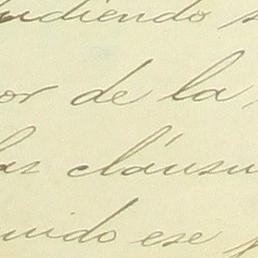 udiendo s
or de la
las cláusu
uido ese p